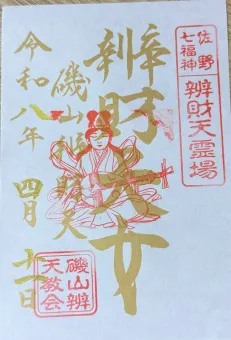 佐野
七福神
辨財天霊場
辨財天女
磯山辨財天
令和八年 四月十一日
磯山辨
天教会